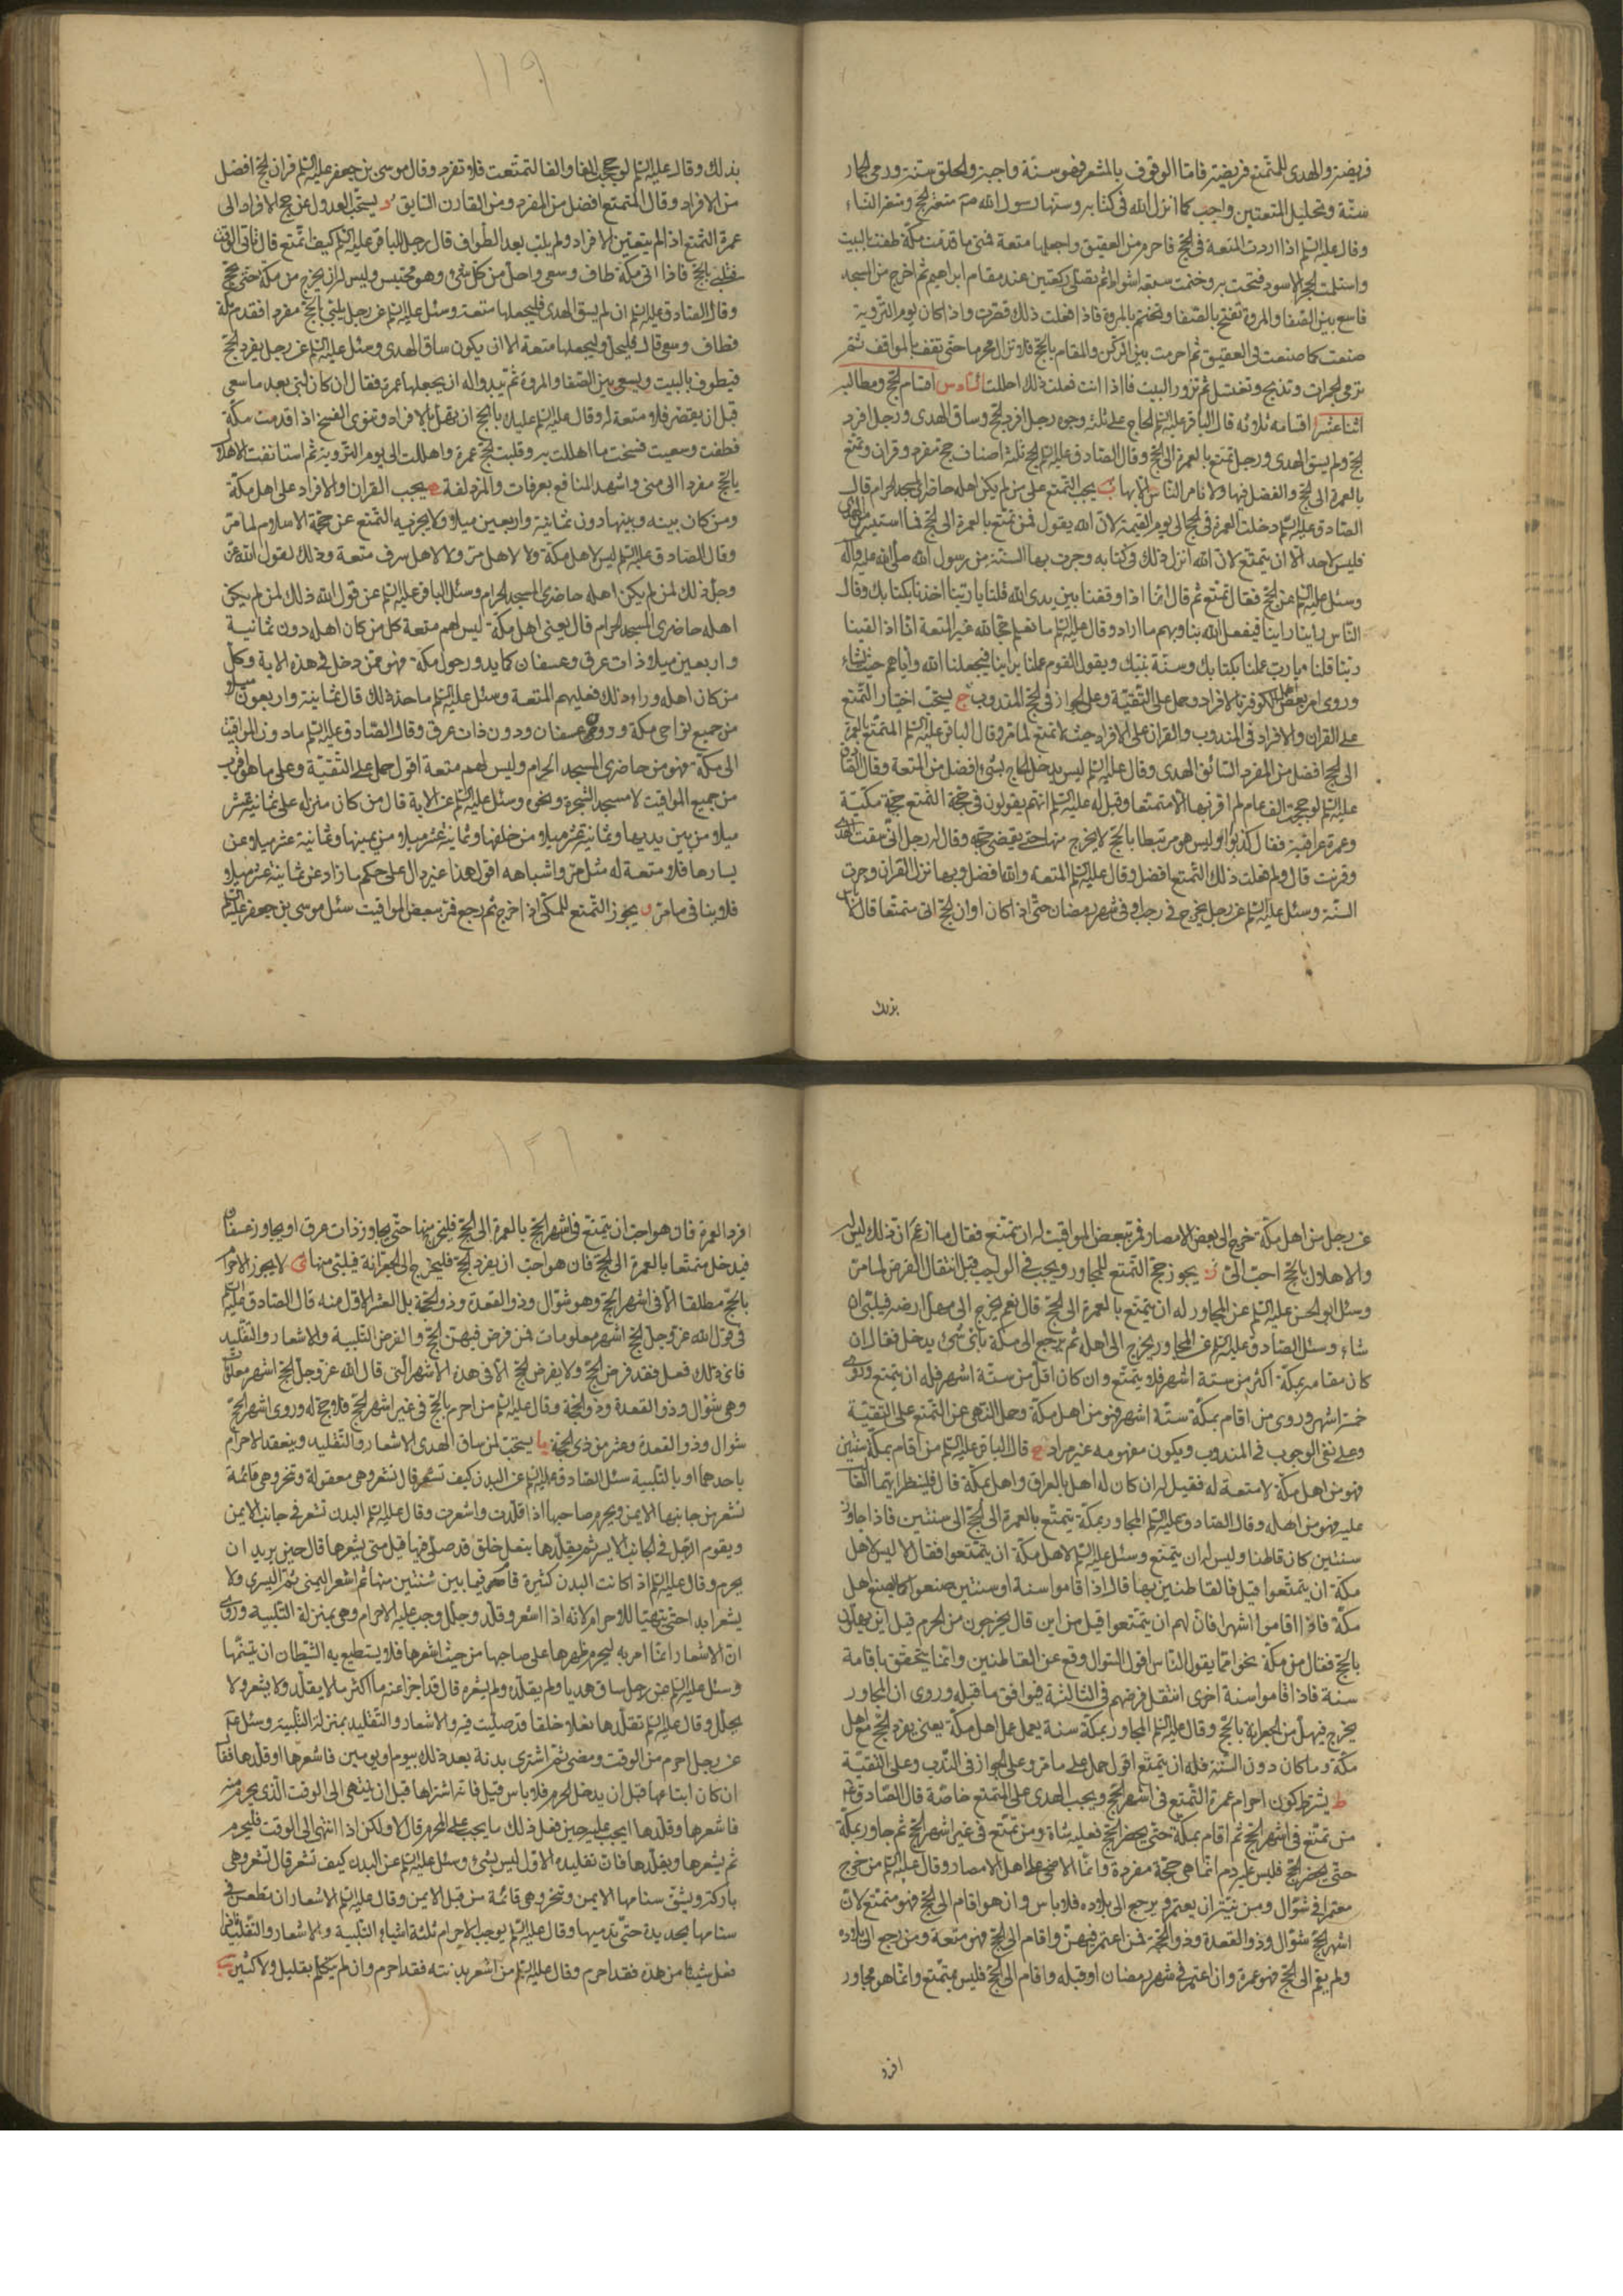 فريضة والهدى للمتمتع فريضة فاما الوقوف بالمشعر فهو سنة واجبة والحلق سنة ورمى الجمار
سنة وتحليل المتعتين واجب كما انزل الله فى كتابه وسنها رسول الله ص متعة الحج ومتعة النساء
وقال عليه السلم اذا اردت المتعة فى الحج فاحرم من العقيق واجعلها متعة فمتى ما قدمت مكة طفت بالبيت
واستلمت الحجر الاسود فتحت به وختمت سبعة اشواط ثم تصلى ركعتين عند مقام ابراهيم ثم اخرج من المسجد
فاسع بين الصفا والمروة تفتح بالصفا وتختم بالمروة فاذا فعلت ذلك قصرت واذا كان يوم التروية
صنعت كما صنعت فى العقيق ثم احرمت بين الركن والمقام بالحج فلا تزال محرما حتى تقف بالمواقف ثم
ترمى الجمرات وتذبح وتغتسل ثم تزور البيت فاذا انت فعلت ذلك احللت السادس اقسام الحج ومطالبه
اثنا عشر ا اقسامه ثلاثه قال الباقر عليه السلم الحاج على ثلثة وجوه رجل افرد الحج وساق الهدى ورجل افرد
الحج ولم يسق الهدى ورجل تمتع بالعمرة الى الحج وقال الصادق عليه السلم الحج ثلثة اصناف حج مفرد وقران وتمتع
بالعمرة الى الحج والفضل فيها ولا نامر الناس الا بها ب يجب التمتع على من لم يكن اهله حاضرى المسجد الحرام قال
الصادق عليه السلم دخلت العمرة فى الحج الى يوم القيمة لان الله يقول فمن تمتع بالعمرة الى الحج فما استيسر من الهدى
فليس لاحد الا ان يتمتع لان الله انزل ذلك فى كتابه وجرت بها السنة من رسول الله صلى الله عليه وآله
وسئل عليه السلم عن الحج فقال تمتع ثم قال انا اذا وقفنا بين يدى الله قلنا يا ربنا اخذنا بكتابك وقال
الناس راينا راينا فيفعل الله بنا وبهم ما اراد وقال عليه السلم ما نعلم حجا لله غير المتعة انا اذا لقينا
ربنا قلنا يا رب عملنا بكتابك وسنة نبيك ويقول القوم عملنا براينا فيجعلنا الله واياهم حيث يشاء
وروى امر بعض اهل الكوفة بالافراد وحمل على التقية وعلى الجواز فى الحج المندوب ج يستحب اختيار التمتع
على القران والافراد فى المندوب والقران على الافراد حيث لا تمتع لما مر وقال الباقر عليه السلم المتمتع بالعمرة
الى الحج افضل من المفرد السائق الهدى وقال عليه السلم ليس يدخل الحاج بشئ افضل من المتعة وقال الصادق
عليه السلم لو حججت الف عام لم اقربها الا متمتعا وقيل له عليه السلم انهم يقولون فى حجة التمتع حجة مكية
وعمرة عراقية فقال كذبوا او ليس هو مرتبطا بالحج لا يخرج منها حتى يقضى حجه وقال له رجل انى سقت الهدى
وقرنت قال ولم فعلت ذلك التمتع افضل وقال عليه السلم المتعة والله افضل وبها نزل القران وجرت
السنة وسئل عليه السلم عن رجل يخرج فى رجب او فى شهر رمضان حتى اذا كان اوان الحج اتى متمتعا قال لا باس
بذلك
١١٩
بذلك وقال عليه السلم لو حججت الفا والفا لتمتعت فلا تفرد وقال موسى بن جعفر عليه السلم قران الحج افضل
من الافراد وقال المتمتع افضل من المفرد ومن القارن السايق د يستحب العدول عن حج الافراد الى
عمرة التمتع اذا لم يتعين الافراد ولم يلب بعد الطواف قال رجل للباقر عليه السلم كيف اتمتع قال تاتى الوقت
فتلبى بالحج فاذا اتى مكة طاف وسعى واحل من كل شئ وهو محتبس وليس له ان يخرج من مكة حتى يحج
وقال الصادق عليه السلم ان لم يسق الهدى فليجعلها متعة وسئل عليه السلم عن رجل يلبى بالحج مفردا فقدم مكة
فطاف وسعى قال فليحل وليجعلها متعة الا ان يكون ساق الهدى وسئل عليه السلم عن رجل يفرد الحج
فيطوف بالبيت ويسعى بين الصفا والمروة ثم يبدو اله ان يجعلها عمرة فقال ان كان لبى بعد ما سعى
قبل ان يقصر فلا متعة له وقال عليه السلم عليك بالحج ان تهل بالافراد وتنوى الفسخ اذا قدمت مكة
فطفت وسعيت فسخت ما اهللت به وقلبت الحج عمرة واهللت الى يوم التروية ثم استانفت الاهلال
بالحج مفردا الى منى واشهد المنافع بعرفات والمزدلفة ه يجب القران او الافراد على اهل مكة
ومن كان بينه وبينها دون ثمانية واربعين ميلا ولا يجزيه التمتع عن حجة الاسلام لما مر
وقال الصادق عليه السلم ليس لاهل مكة ولا لاهل مر ولا لاهل سرف متعة وذلك لقول الله عز
وجل ذلك لمن لم يكن اهله حاضرى المسجد الحرام وسئل الباقر عليه السلم عن قول الله ذلك لمن لم يكن
اهله حاضرى المسجد الحرام قال يعنى اهل مكة ليس لهم متعة كل من كان اهله دون ثمانية
واربعين ميلا ذات عرق وعسفان كما يدور حول مكة فهو ممن دخل فى هذه الاية وكل
من كان اهله وراء ذلك فعليهم المتعة وسئل عليه السلم ما حد ذلك قال ثمانية واربعون ميلا
من جميع نواحى مكة دون عسفان ودون ذات عرق وقال الصادق عليه السلم ما دون المواقيت
الى مكة فهو من حاضرى المسجد الحرام وليس لهم متعة اقول حمل على التقية وعلى ما هو اقرب
من جميع المواقيت لا مسجد الشجرة ونحوه وسئل عليه السلم عن الاية قال من كان منزله على ثمانية عشر
ميلا من بين يديها وثمانية عشر ميلا من خلفها وثمانية عشر ميلا من يمينها وثمانية عشر ميلا عن
يسارها فلا متعة له مثل مر واشباهه اقول هذا غير دال على حكم ما زاد عن ثمانية عشر ميلا
فلا ينافى ما مر و يجوز التمتع للمكى اذا خرج ثم رجع فمر ببعض المواقيت سئل موسى بن جعفر عليه السلم
عن رجل من اهل مكة خرج الى بعض الامصار فمر ببعض المواقيت له ان يتمتع فقال ما ازعم ان ذلك ليس له
والاهلال بالحج احب الى ز يجوز حج التمتع للمجاور ويجب فى الواجب قبل انتقال الفرض لما مر
وسئل ابو الحسن عليه السلم عن المجاور له ان يتمتع بالعمرة الى الحج قال نعم يخرج الى مهل ارضه فيلبى ان
شاء وسئل الصادق عليه السلم عن المجاور يخرج الى اهله ثم يرجع الى مكة باى شئ يدخل فقال ان
كان مقامه بمكة اكثر من ستة اشهر فلا يتمتع وان كان اقل من ستة اشهر فله ان يتمتع وروى
خمسة اشهر وروى من اقام بمكة ستة اشهر فهو من اهل مكة وحمل النهى عن التمتع على التقية
وعلى نفى الوجوب فى المندوب ويكون مفهومه غير مراد ح قال الباقر عليه السلم من اقام بمكة سنتين
فهو من اهل مكة لا متعة له فقيل له ان كان له اهل بالعراق واهل بمكة قال فلينظر ايهما الغالب
عليه فهو من اهله وقال الصادق عليه السلم المجاور بمكة يتمتع بالعمرة الى الحج الى سنتين فاذا جاوز
سنتين كان قاطنا وليس له ان يتمتع وسئل عليه السلم لاهل مكة ان يتمتعوا فقال لا ليس لاهل
مكة ان يتمتعوا قيل فالقاطنين بها قال اذا اقاموا سنة او سنتين صنعوا كما يصنع اهل
مكة فاذا اقاموا اشهرا فان لهم ان يتمتعوا قيل من اين قال يخرجون من الحرم قيل اين يهلون
بالحج فقال من مكة نحوا مما يقول الناس اقول السؤال وقع عن القاطنين وانما يتحقق باقامة
سنة فاذا اقاموا سنة اخرى انتقل فرضهم فى الثالثة فيوافق ما قبله وروى ان المجاور
يخرج فيهل من الجعرانة بالحج وقال عليه السلم المجاور بمكة سنة يعمل عمل اهل مكة يعنى يفرد الحج مع اهل
مكة وما كان دون السنة فله ان يتمتع اقول حمل على ما مر وعلى الجواز فى الندب وعلى التقية
ط يشترط كون احرام عمرة التمتع فى اشهر الحج ويجب الهدى على المتمتع خاصة قال الصادق ع
من تمتع فى اشهر الحج ثم اقام بمكة حتى يحضر الحج فعليه شاة ومن تمتع فى غير اشهر الحج ثم جاور بمكة
حتى يحضر الحج فليس عليه دم انما هى حجة مفردة وانما الاضحى على اهل الامصار وقال عليه السلم من خرج
معتمرا فى شوال ومن نيته ان يعتمر ويرجع الى بلاده فلا باس وان هو اقام الى الحج فهو متمتع لان
اشهر الحج شوال وذو القعدة وذو الحجة فمن اعتمر فيهن واقام الى الحج فهى متعة ومن رجع الى بلاده
ولم يقم الى الحج فهو عمرة وان اعتمر فى شهر رمضان او قبله واقام الى الحج فليس بمتمتع وانما هو مجاور
افرد
١٢٠
افرد العمرة فان هو احب ان يتمتع فى اشهر الحج بالعمرة الى الحج فليخرج منها حتى يجاوز ذات عرق او يجاوز عسفان
فيدخل متمتعا بالعمرة الى الحج فان هو احب ان يفرد الحج فليخرج الى الجعرانة فيلبى منها ى لا يجوز الاحرام
بالحج مطلقا الا فى اشهر الحج وهو شوال وذو القعدة وذو الحجة بل العشر الاول منه قال الصادق عليه السلم
فى قول الله عز وجل الحج اشهر معلومات فمن فرض فيهن الحج والفرض التلبية والاشعار والتقليد
فاى ذلك فعل فقد فرض الحج ولا يفرض الحج الا فى هذه الاشهر التى قال الله عز وجل الحج اشهر معلومات
وهى شوال وذو القعدة وذو الحجة وقال عليه السلم من احرم بالحج فى غير اشهر الحج فلا حج له وروى اشهر الحج
شوال وذو القعدة وعشر من ذى الحجة يا يستحب لمن ساق الهدى الاشعار والتقليد وينعقد الاحرام
باحدهما او بالتلبية سئل الصادق عليه السلم عن البدن كيف تشعر قال تشعر وهى معقولة وتنحر وهى قائمة
تشعر من جانبها الايمن ويحرم صاحبها اذا قلدت واشعرت وقال عليه السلم البدن تشعر فى جانب الايمن
ويقوم الرجل فى الجانب الايسر ثم يقلدها بنعل خلق قد صلى فيها قيل متى يشعرها قال حين يريد ان
يحرم وقال عليه السلم اذا كانت البدن كثيرة قام فيما بين ثنتين منها ثم اشعر اليمنى ثم اليسرى ولا
يشعر ابدا حتى يتهيا للاحرام لانه اذا اشعر وقلد وجلل وجب عليه الاحرام وهى بمنزلة التلبية وروى
ان الاشعار انما امر به ليحرم ظهرها على صاحبها من حيث اشعرها فلا يستطيع به الشيطان ان يتسنمها
وسئل عليه السلم عن رجل ساق هديا ولم يقلده ولم يشعره قال قد اجزا عنه ما اكثر ما لا يقلد ولا يشعر ولا
يجلل وقال عليه السلم تقلدها نعلا خلقا قد صليت فيه والاشعار والتقليد بمنزلة التلبية وسئل ع
عن رجل احرم من الوقت ومضى ثم اشترى بدنة بعد ذلك بيوم او يومين فاشعرها وقلدها فقال
ان كان ابتاعها قبل ان يدخل الحرم فلا باس قيل فانه اشتراها قبل ان ينتهى الى الوقت الذى يحرم منه
فاشعرها وقلدها ايجب عليه حين فعل ذلك ما يجب على المحرم قال لا ولكن اذا انتهى الى الوقت فليحرم
ثم يشعرها ويقلدها فان تقليده الاول ليس بشئ وسئل عليه السلم عن البدن كيف تشعر قال تشعر وهى
باركة ويشق سنامها الايمن وتنحر وهى قائمة من قبل الايمن وقال عليه السلم الاشعار ان تطعن فى
سنامها بحديدة حتى تدميها وقال عليه السلم يوجب الاحرام ثلثة اشياء التلبية والاشعار والتقليد فاذا
فعل شيئا من هذه فقد احرم وقال عليه السلم من اشعر بدنته فقد احرم وان لم يتكلم بقليل ولا كثير يب